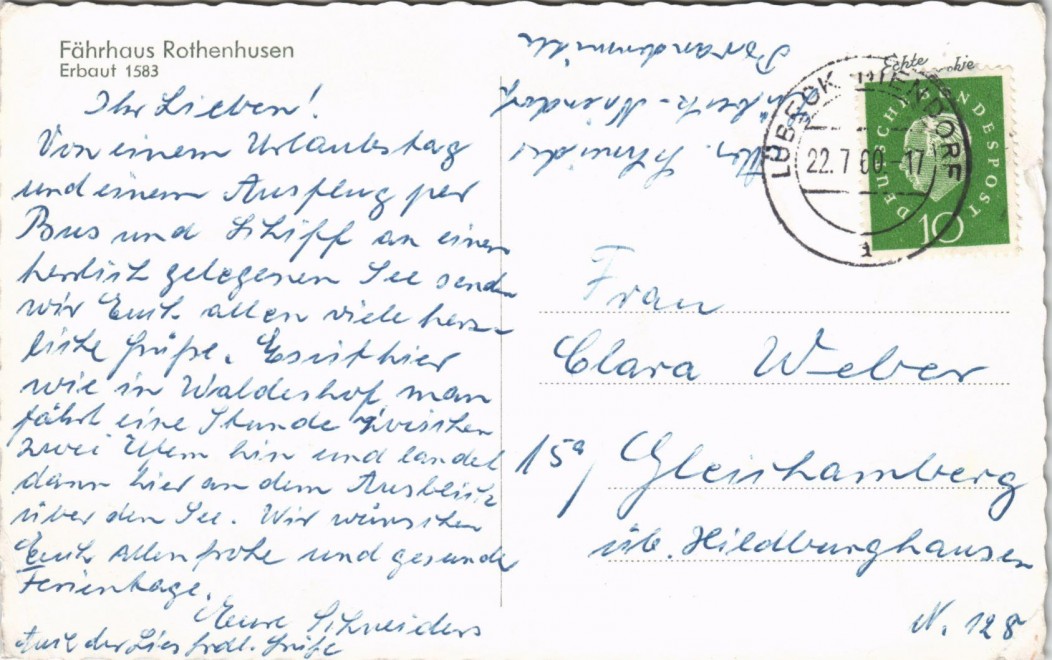 Fährhaus Rothenhusen
Erbaut 1583
Ihr Lieben!
Von einem Urlaubstag
und einem Ausflug per
Bus und Schiff an einem
herrlich gelegenen See senden
wir Euch allen viele herz-
liche Grüße. Es ist hier
wie in Waldeshof, man
fährt eine Stunde zwischen
zwei Ufern hin und landet
dann hier an dem Ausblick
über den See. Wir wünschen
Euch allen frohe und gesunde
Ferientage.
Eure Schneiders
Auch der Lies frdl. Grüße
Abs. Schneider
Lübeck-Niendorf
Echte
LÜBECK NIENDORF
22.7.60-17
DEUSCHE BUNDESPOST
10
Frau
Clara Weber
15a/ Gleichamberg
üb. Hildburghausen
N. 128